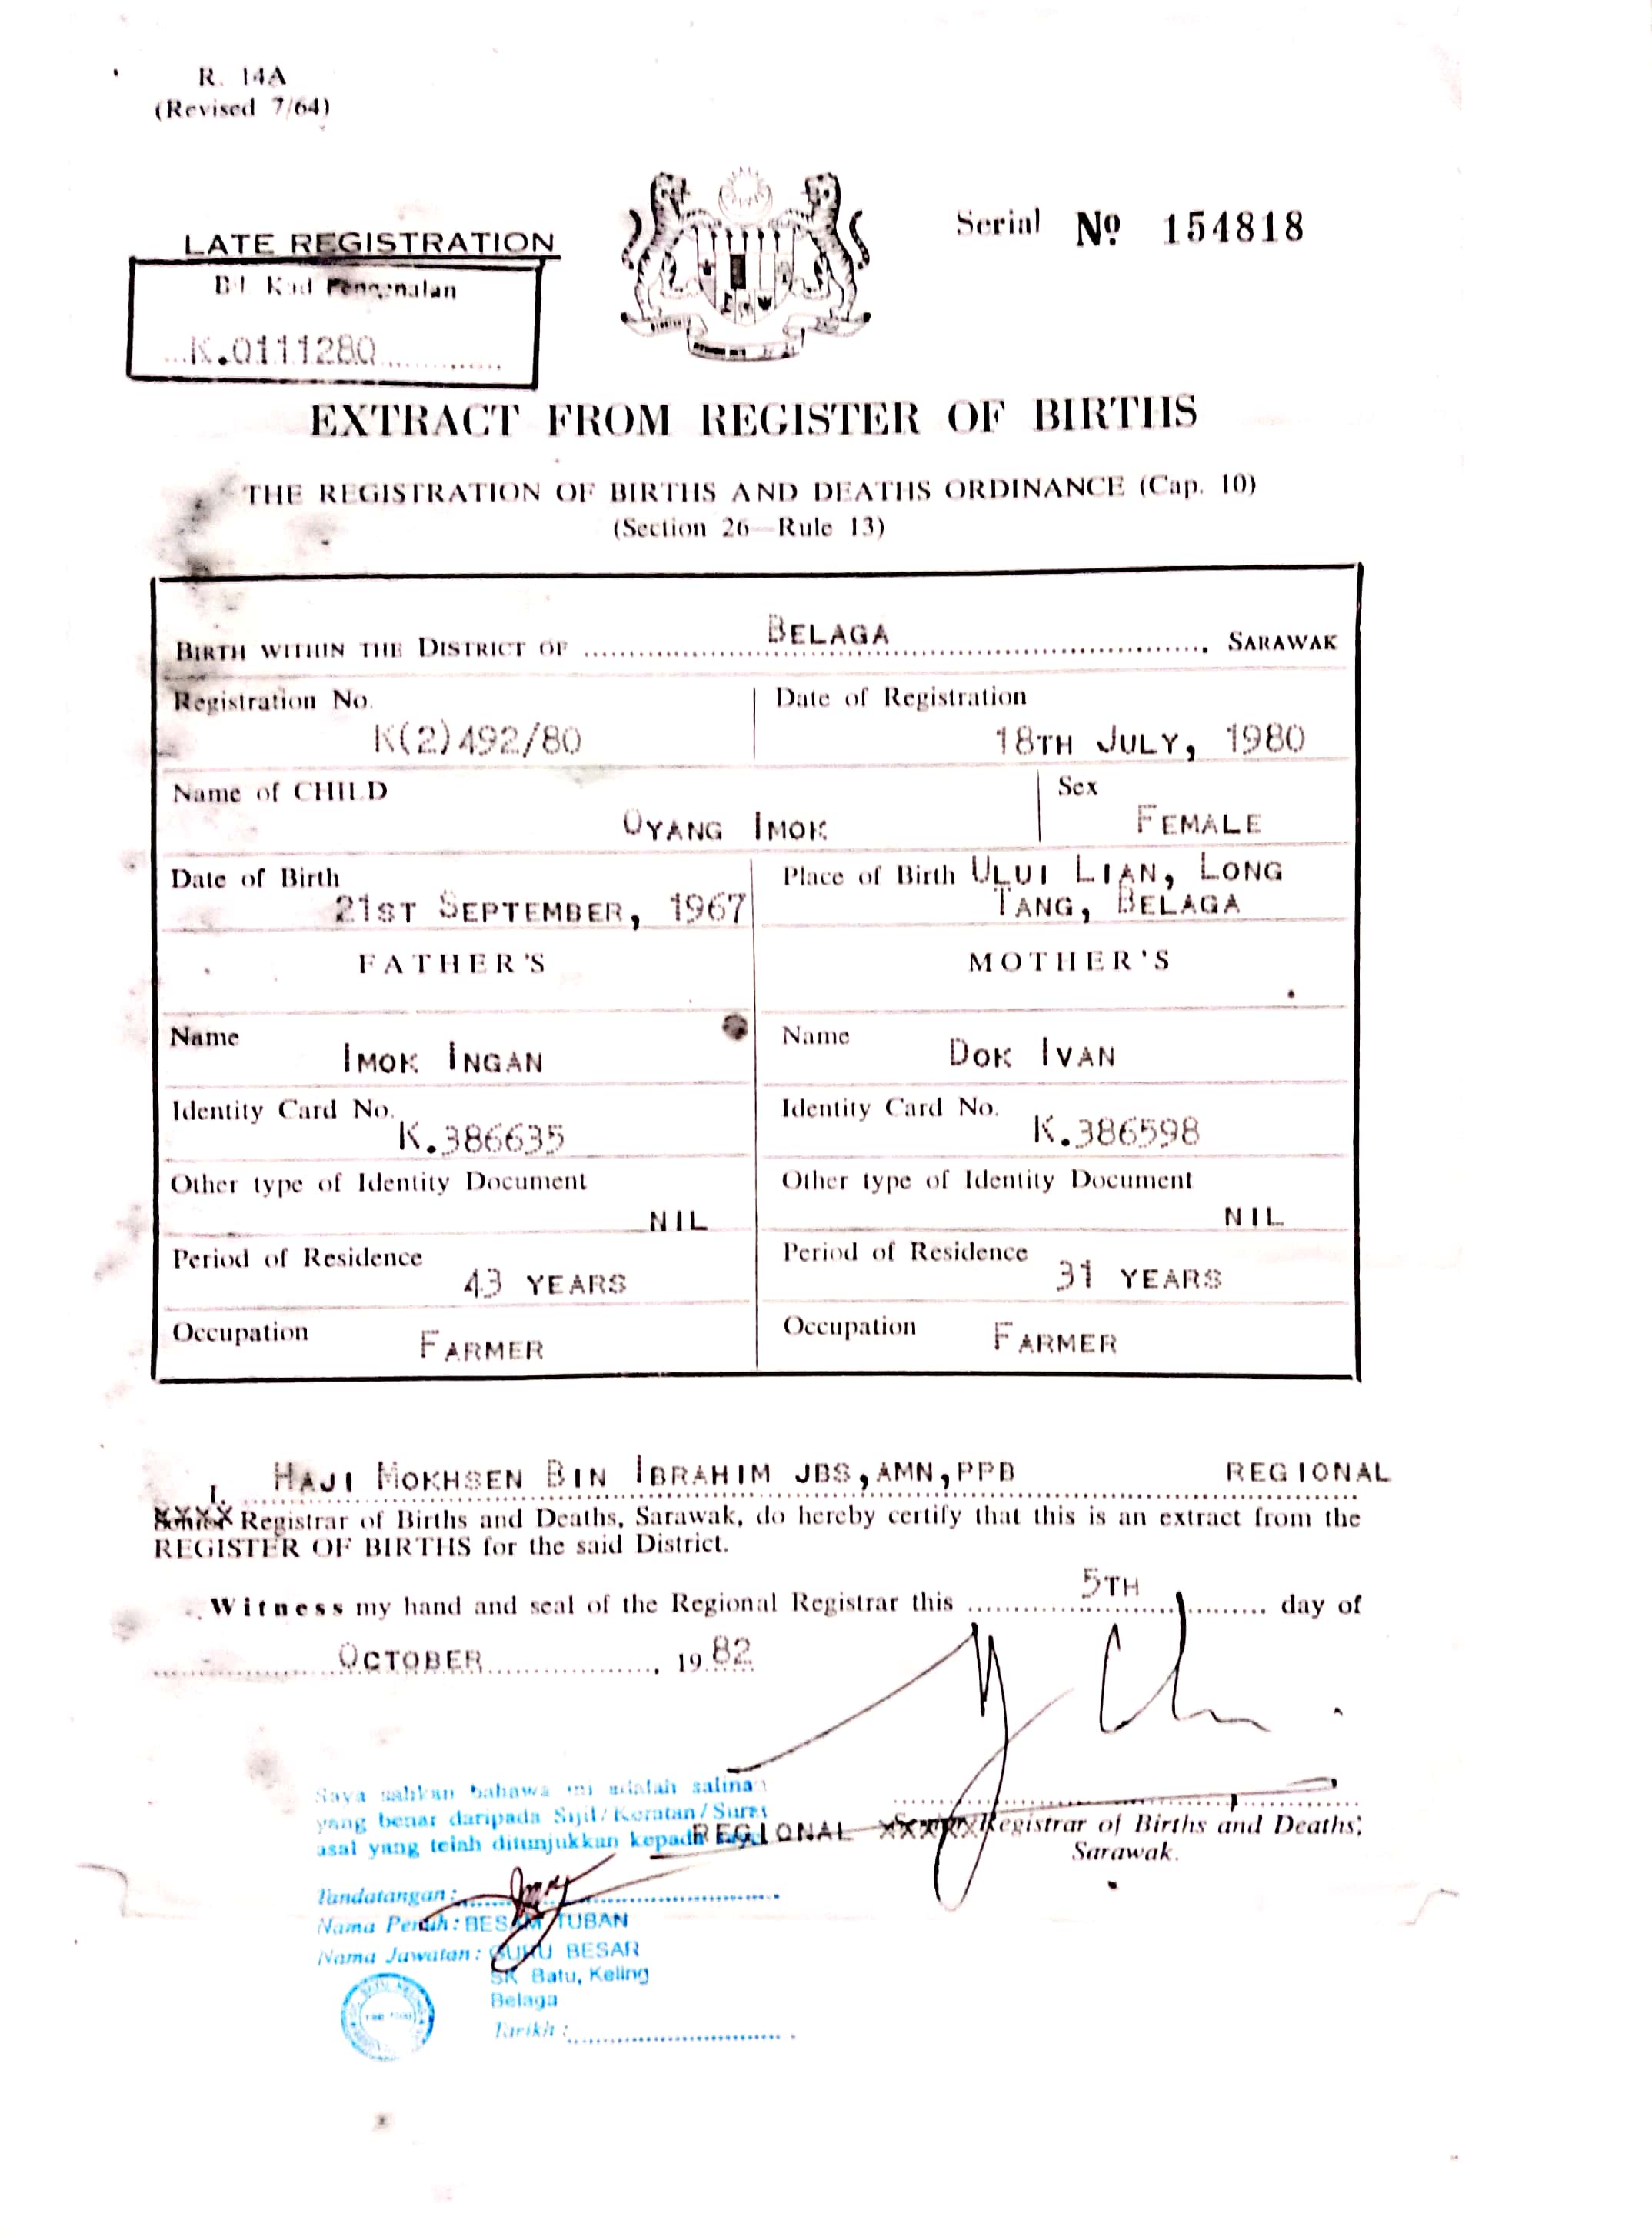 R. 14A
(Revised 7/64)
LATE REGISTRATION
Bil Kad Pengenalan
K.0111280
Serial № 154818
EXTRACT FROM REGISTER OF BIRTHS
THE REGISTRATION OF BIRTHS AND DEATHS ORDINANCE (Cap. 10)
(Section 26—Rule 13)
BIRTH WITHIN THE DISTRICT OF BELAGA, SARAWAK
Registration No.
K(2)492/80
Date of Registration
18TH JULY, 1980
Name of CHILD
OYANG IMOK
Sex
FEMALE
Date of Birth
21ST SEPTEMBER, 1967
Place of Birth ULUI LIAN, LONG
TANG, BELAGA
FATHER'S
MOTHER'S
Name
IMOK INGAN
Name
DOK IVAN
Identity Card No.
K.386635
Identity Card No.
K.386598
Other type of Identity Document
NIL
Other type of Identity Document
NIL
Period of Residence
43 YEARS
Period of Residence
31 YEARS
Occupation
FARMER
Occupation
FARMER
I, HAJI MOKHSEN BIN IBRAHIM JBS,AMN,PPB REGIONAL
XXXX Registrar of Births and Deaths, Sarawak, do hereby certify that this is an extract from the
REGISTER OF BIRTHS for the said District.
Witness my hand and seal of the Regional Registrar this 5TH day of
OCTOBER, 1982
REGIONAL XXXXX Registrar of Births and Deaths,
Sarawak.
Saya sahkan bahawa ini adalah salinan
yang benar daripada Sijil/Keratan/Surat
asal yang telah ditunjukkan kepada saya
Tandatangan:
Nama Penuh: BESAM TUBAN
Nama Jawatan: GURU BESAR
SK Batu, Keling
Belaga
Tarikh: